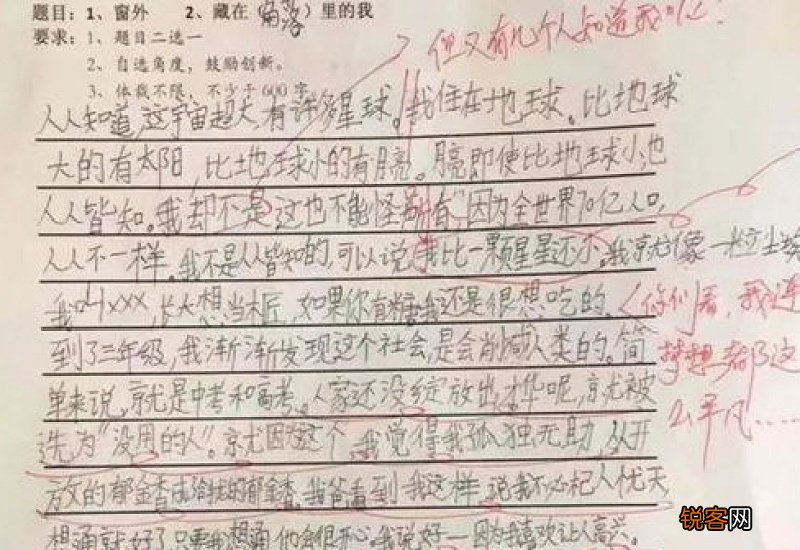 题目：1、窗外　2、藏在（角落）里的我
要求：1、题目二选一
2、自选角度，鼓励创新。
3、体裁不限，不少于600字
但又有几个人知道我呢？
人人知道，这宇宙超大，有许多星球。我住在地球。比地球
大的有太阳，比地球小的有月亮。月亮即使比地球小，也
人人皆知。我却不是，这也不能怪别有，因为全世界70亿人口，
人人不一样。我不是人人皆知的，可以说，我比一颗星星还小。我就像一粒尘埃
我叫xxx，长大想当木匠，如果你有糖，我还是很想吃的。
你们看，我连
梦想都这
么平凡……
到了三年级，我渐渐发现这个社会，是会削减人类的。简
单来说，就是中考和高考。人家还没绽放出才华呢，就被
选为“没用的人”。就因为这个，我觉得我孤独无助，从开
放的郁金香成的郁金香。我爸看到我这样，说我不必杞人忧天，
想通就好了，只要我想通，他会很开心。我说好——因为我喜欢让人高兴。
锐客网